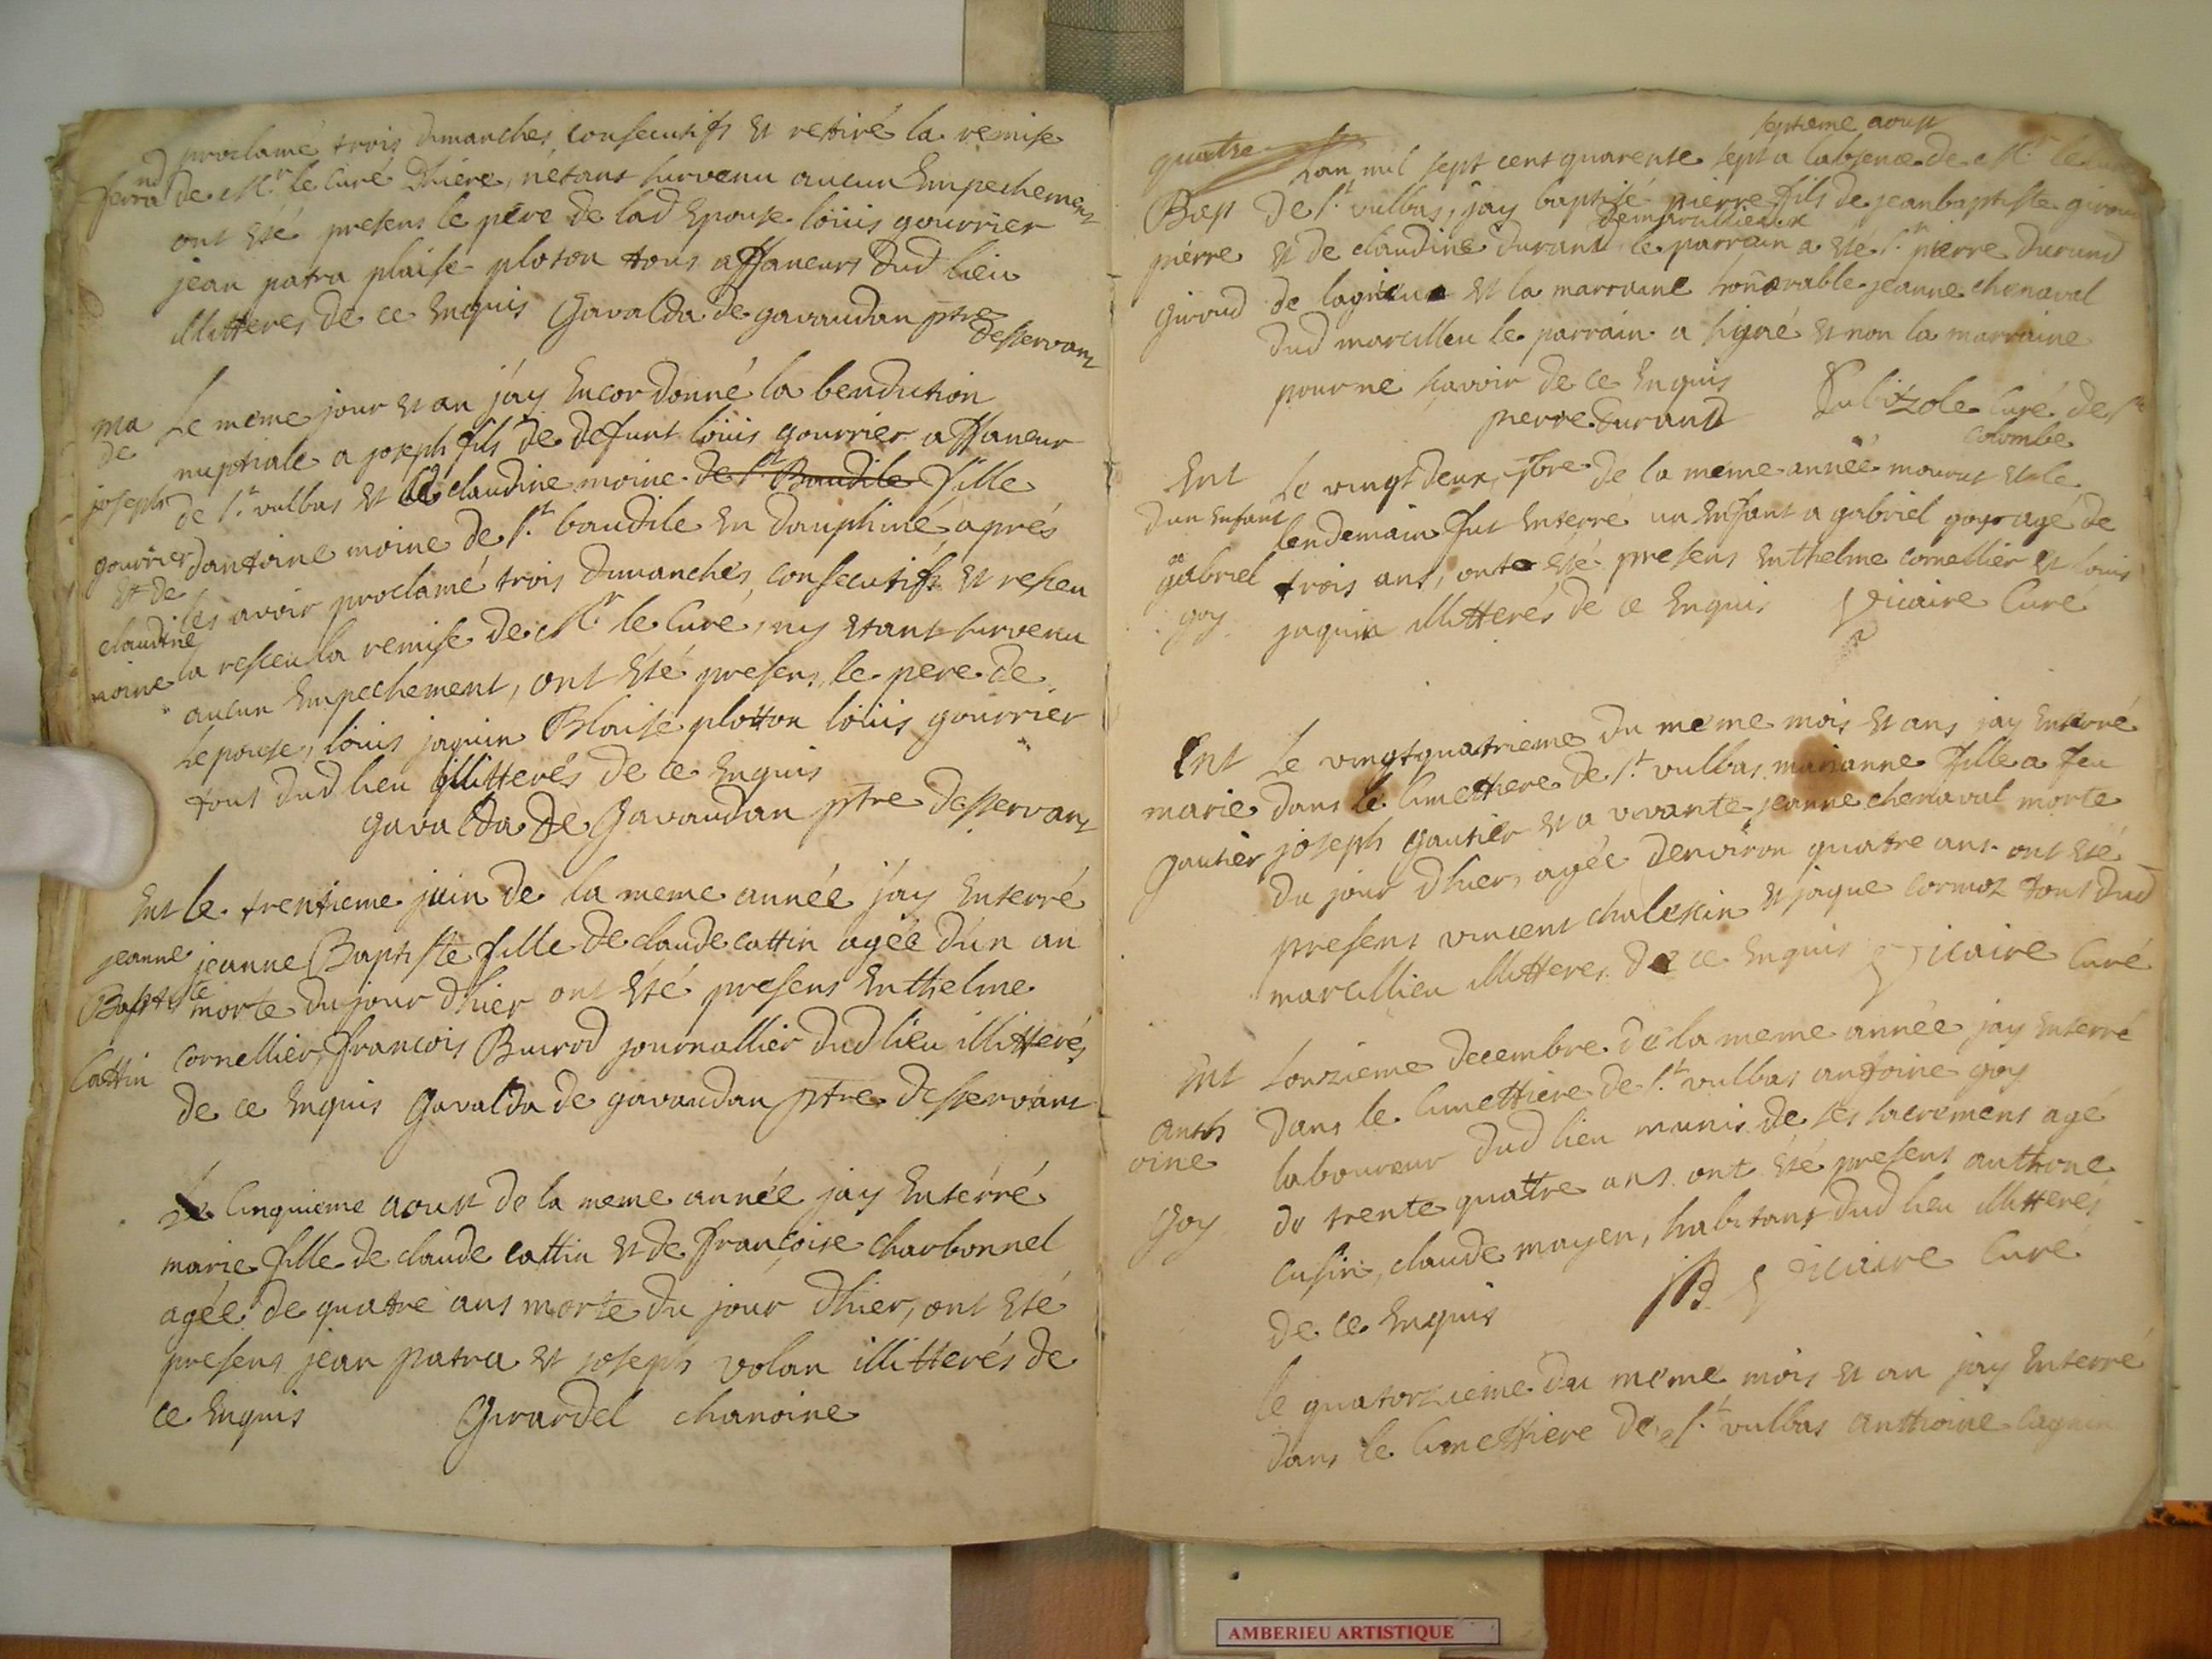 proclamé trois dimanches consecutifs et retiré la remise
ferra nd de Mr. le Curé Dhiere, nétant survenu aucun Empechement
ont été presens le pere de lad Epouse louis gourrier
jean patra plaise ploton tous affaneurs dud lieu
illitteres de ce Enquis Gavalda de gavaudan ptre
desservant
ma Le meme jour et an j'ay Encor donné la bendiction
de nuptiale a joseph fils de defunt louis gourrier affaneur
joseph de St. vulbas et claudine moine de St Baudile fille
gourrier dantoine moine de St. baudile en dauphiné, aprés
Et de les avoir proclamé trois dimanches consecutifs et resceu
claudine
moine la resceu la remise de Mr. le Curé, ny etant survenu
aucun Empechement, ont été presens le pere de
Lepouse, louis jaquin Blaise plotton louis gourrier
tout dud lieu illitterés de ce Enquis
gavalda De Gavaudan ptre Desservant
Ent le trentieme juin de la meme année j'ay Enterré
jeanne jeanne Baptiste fille de claude cattin agée d'un an
Baptiste morte du jour dhier ont été presens Enthelme
Cattin Cornellier, francois Buirod journallier dud lieu illitterés
de ce Enquis Gavalda de gavaudan ptre Desservant
Le Cinquieme aoust de la meme année jay Enterré
marie fille de claude cattin et de françoise charbonnel
agée de quatre ans morte du jour dhier, ont été
presens jean patra et joseph volan illitterés de
ce Enquis Girardel chanoine
septieme aoust
quatre Lan mil sept cent quarente sept a labsence de Mr. le
Bap De St. vulbas, jay baptisé pierre fils de jean baptiste giroud
de marcillieux
piérre et de claudine durant le parrain a été Sr. pierre durand
giroud de lagnieu et la marraine honorable jeanne chenaval
dud marcilleu le parrain a signé et non la marraine
pour ne scavoir de ce Enquis
pierre durand Curé de Ste
colombe
Ent Le vingt deux 7bre de la meme année mourut et le
dun Enfant lendemain fut Enterré un Enfant a gabriel goy agé de
a gabriel trois ans, onte été presens Enthelme cornellier et louis
goy jaquin illitterés de ce Enquis Vicaire Curé
Ent Le vingt quatrieme du meme mois et ans jay Enterré
marie dans le Cimettiere de St. vulbas marianne fille a feu
gautier joseph gautier et a vivante jeanne chenaval morte
du jour dhier, agée denviron quatre ans ont été
presens vincent chaletin et jaque cormoz tous dud
marcillieu illitteres de ce Enquis Vicaire Curé
Ent Lonzieme decembre de la meme année jay Enterré
anth dans le Cimettiere de St. vulbas antoine goy
oine laboureur dud lieu munis de ses sacremens agé
goy de trente quattre ans ont été presens anthoine
Cusin, claude mayen, habitans dud lieu illitterés
de ce Enquis JB Vicaire Curé
le quatorzieme du meme mois et an jay Enterré
dans le Cimettiere de St. vulbas anthoine
AMBERIEU ARTISTIQUE